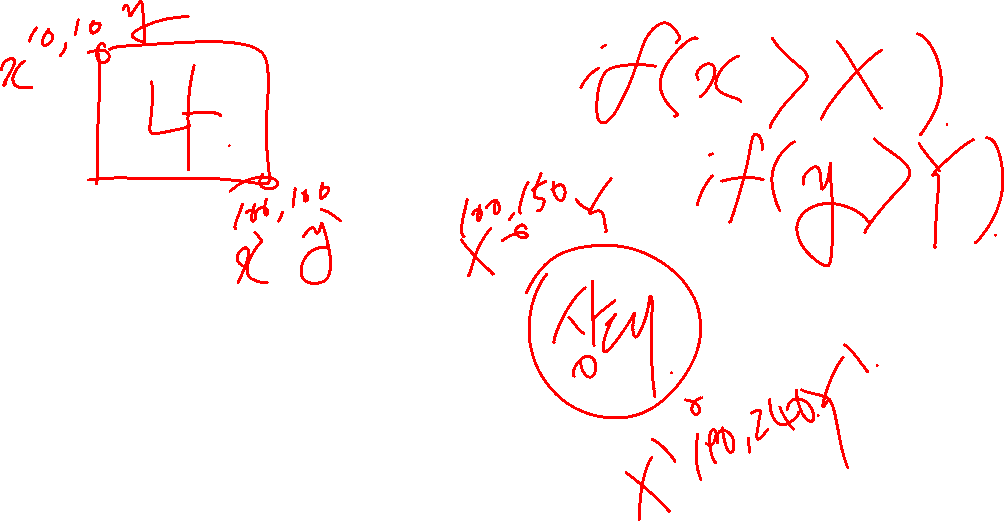 10,10
x y
나
100,100
x` y`
if(x > X)
if(y > Y)
100,150
X Y
상대
190,240
X` Y`